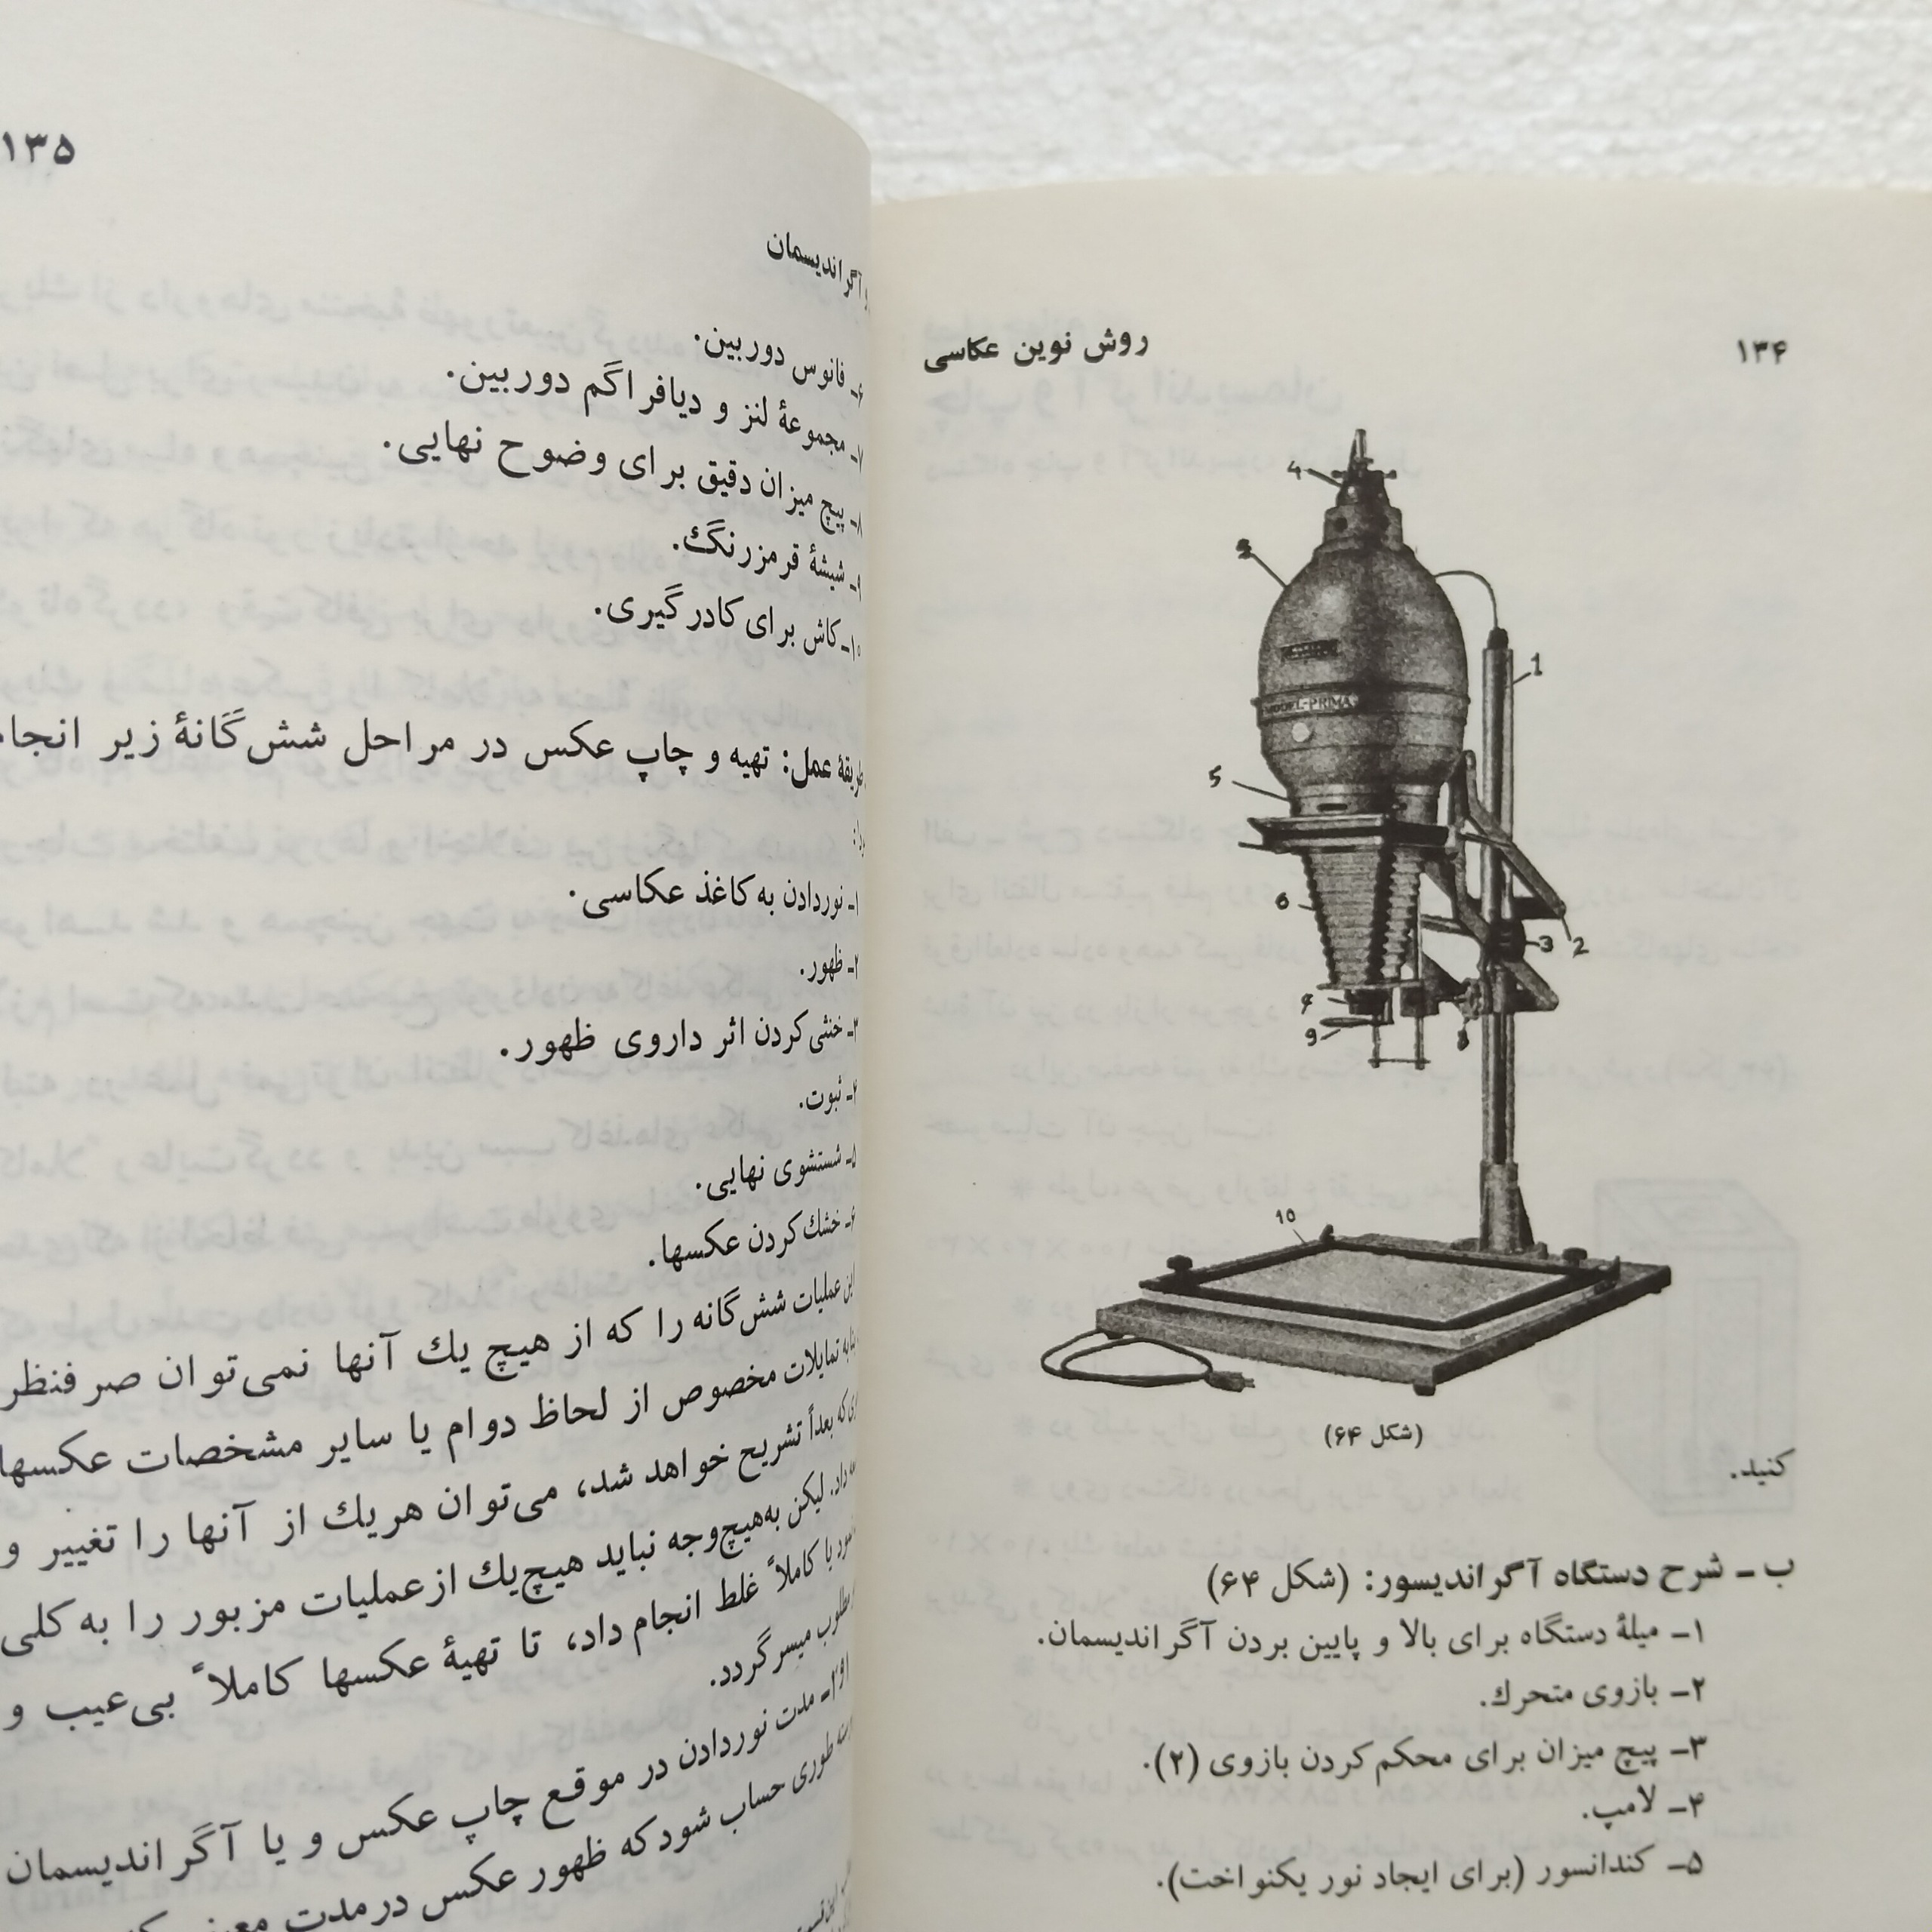 ۱۳۴
روش نوین عکاسی
4
1
MODEL-PRIMA
5
6
3
2
9
10
(شکل ۶۴)
کنید.
ب ـ شرح دستگاه آگراندیسور: (شکل ۶۴)
۱ـ میلۀ دستگاه برای بالا و پایین بردن آگراندیسمان.
۲ـ بازوی متحرك.
۳ـ پیچ میزان برای محکم کردن بازوی (۲).
۴ـ لامپ.
۵ـ کندانسور (برای ایجاد نور یکنواخت).
۱۳۵
آگراندیسمان
۶ـ فانوس دوربین.
۷ـ مجموعۀ لنز و دیافراگم دوربین.
۸ـ پیچ میزان دقیق برای وضوح نهایی.
۹ـ شیشۀ قرمزرنگ.
۱۰ـ کاش برای کادرگیری.
عمل: تهیه و چاپ عکس در مراحل شش‌گانۀ زیر
۱ـ نوردادن به کاغذ عکاسی.
۲ـ ظهور.
۳ـ خنثی کردن اثر داروی ظهور.
۴ـ ثبوت.
۵ـ شستشوی نهایی.
۶ـ خشك کردن عکسها.
این عملیات شش‌گانه را که از هیچ یك آنها نمی‌توان صرفنظر
تمایلات مخصوص از لحاظ دوام یا سایر مشخصات عکسها
که بعداً تشریح خواهد شد، می‌توان هریك از آنها را تغییر و
داد. لیکن به‌هیچ‌وجه نباید هیچ‌یك از عملیات مزبور را به کلی
یا کاملاً غلط انجام داد، تا تهیۀ عکسها کاملاً بی‌عیب و
میسر گردد.
مدت نوردادن در موقع چاپ عکس و یا آگراندیسمان
طوری حساب شود که ظهور عکس در مدت